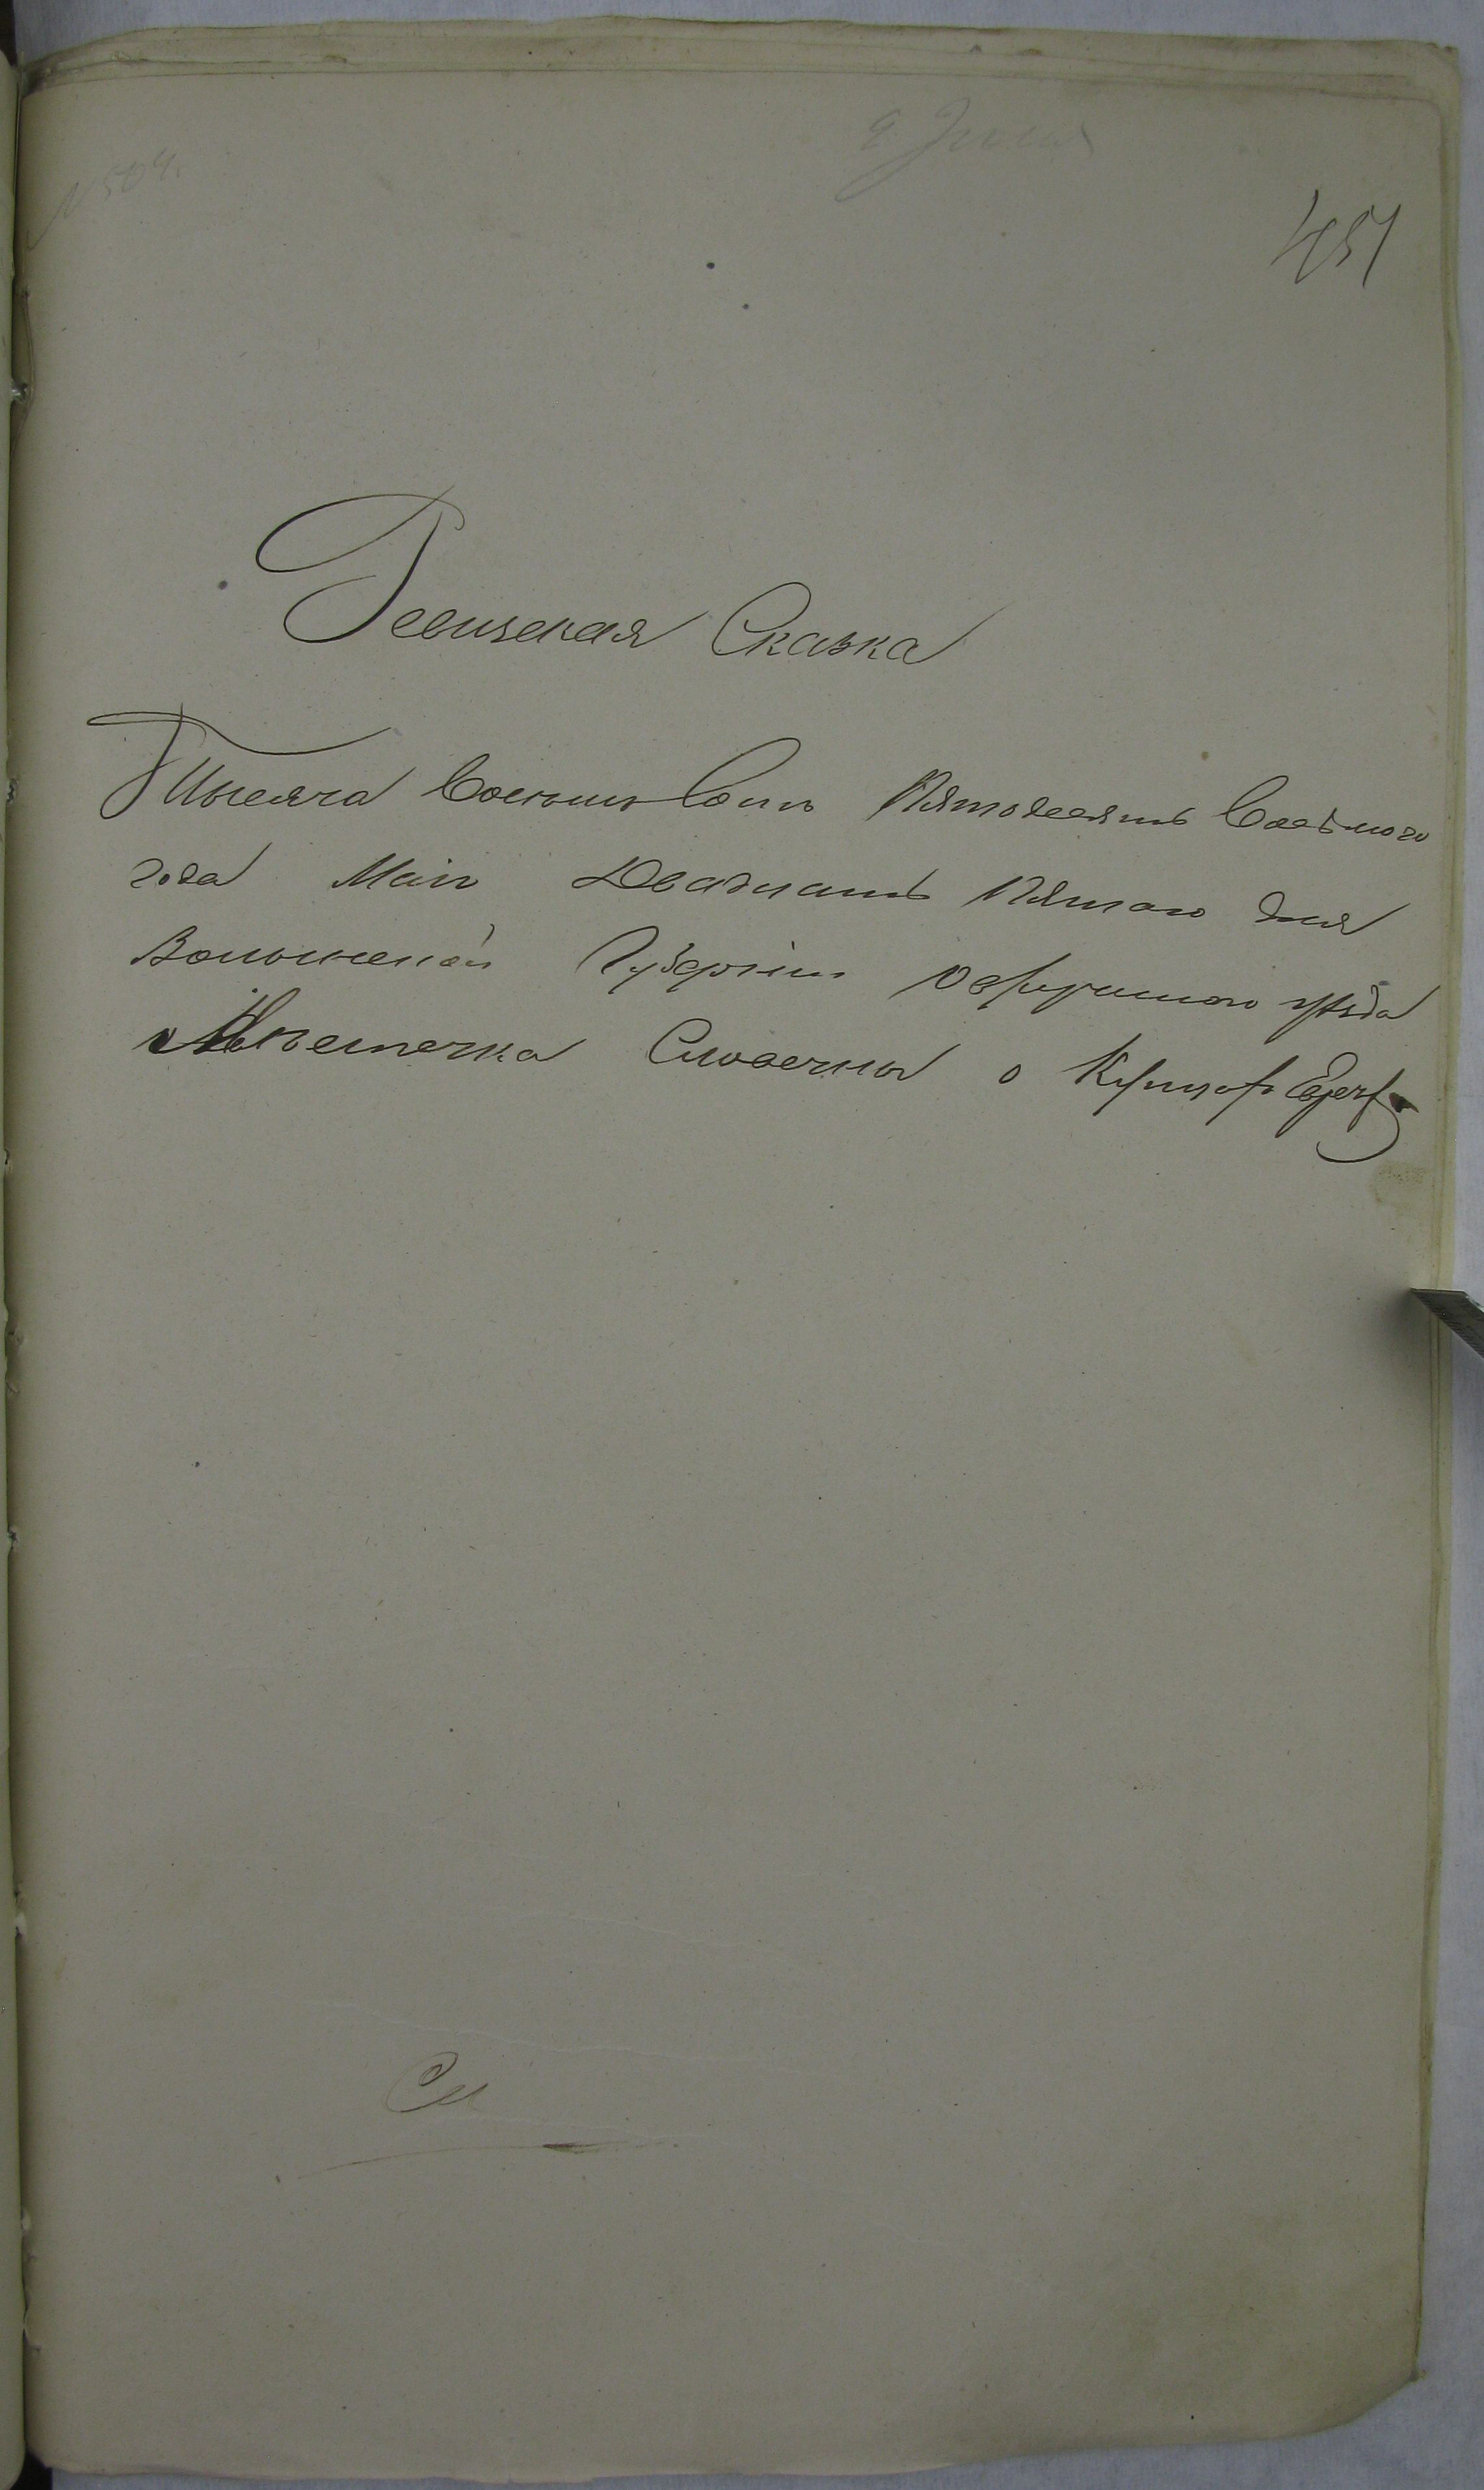 N 504.
9 Июня
451
Ревизская Сказка
Тысяча Восемь Сотъ Пятьдесятъ Восьмого
года Маія Двадцать Пятого дня
Волынской Губерніи Овручского уѣзда
Мѣстечка Словечны о Купцахъ Евреяхъ